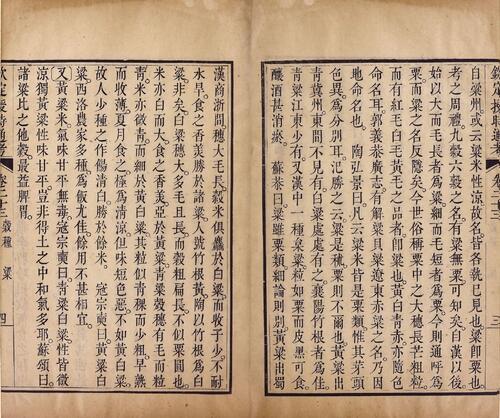 欽定授時通考 卷二十三 三
自粱州或云粱米性涼故名皆各執己見也粱即粟也。
考之周禮九穀六穀之名有粱無粟可知矣自漢以後
始以大而毛長者為粱細而毛短者為粟今則通呼為
粟而粱之名反隱矣今世俗稱粟中之大穗長芒粗粒
而有紅毛白毛黃毛之品者即粱也黃白青赤亦隨色
命名耳郭義恭廣志有解粱貝粱遼東赤粱之名乃因
地命名也。陶弘景曰凡云粱米皆是粟類惟其芽頭
色異為分別耳氾勝之云粱是秫粟則不爾也黃粱出
青冀州東間不見有白粱處處有之襄陽竹根者為佳
青粱江東少有又漢中一種梟粱粒如粟而皮黑可食
釀酒甚消瘀。蘇恭曰粱雖粟類細論則別黃粱出蜀
漢商浙間穗大毛長穀米俱麤於白粱而收子少不耐
水旱食之香美勝於諸粱人號竹根黃陶以竹根為白
粱非矣白粱穗大多毛且長而穀粗扁長不似粟圓也
米亦白而大食之香美亞於黃粱青粱穀穗有毛而粒
青米亦微青而細於黃白粱其粒似青稞而少粗早熟
而收薄夏月食之極為清涼但味短色惡不如黃白粱
故人少種之作餳清白勝於餘米。寇宗奭曰黃粱白
粱西洛農家多種為飯尤佳餘用不甚相宜。
又黃粱米氣味甘平無毒寇宗奭曰青粱白粱性皆微
涼獨黃粱性味甘平豈非得土之中和氣多耶蘇頌曰
諸粱比之他穀最益脾胃。
欽定授時通考 卷二十三 穀種 粱 四